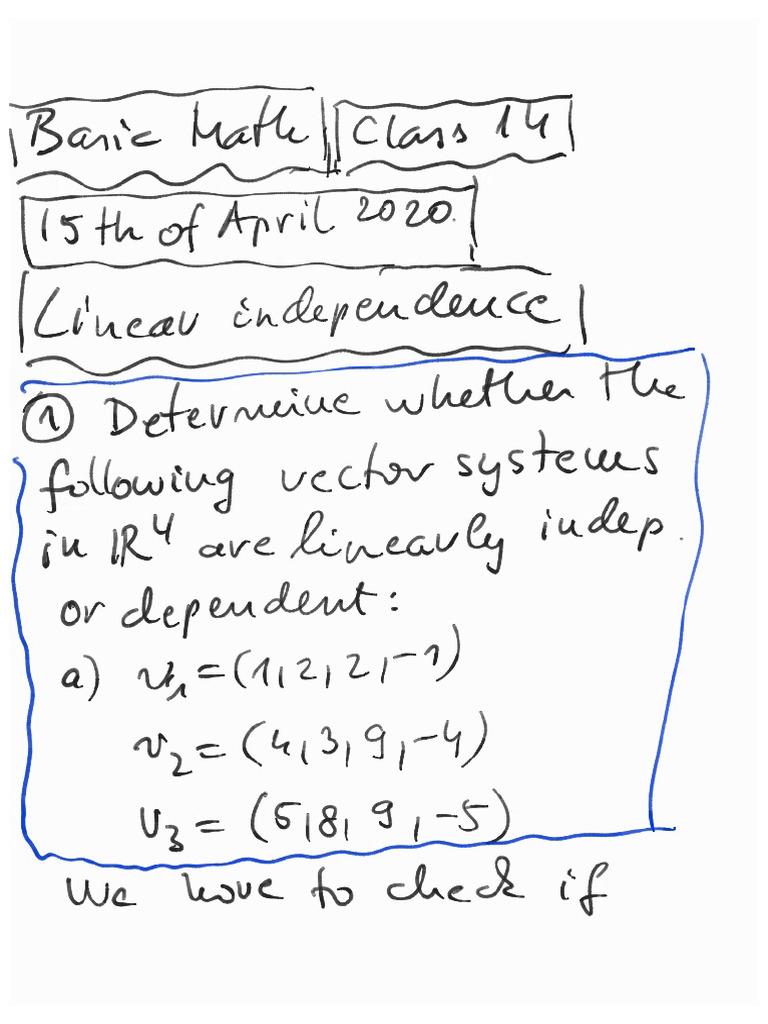 Basic Math Class 14
15th of April 2020.
Linear independence
① Determine whether the
following vector systems
in ℝ⁴ are linearly indep.
or dependent:
a) v₁=(1,2,2,-1)
v₂=(4,3,9,-4)
v₃=(5,8,9,-5)
We have to check if